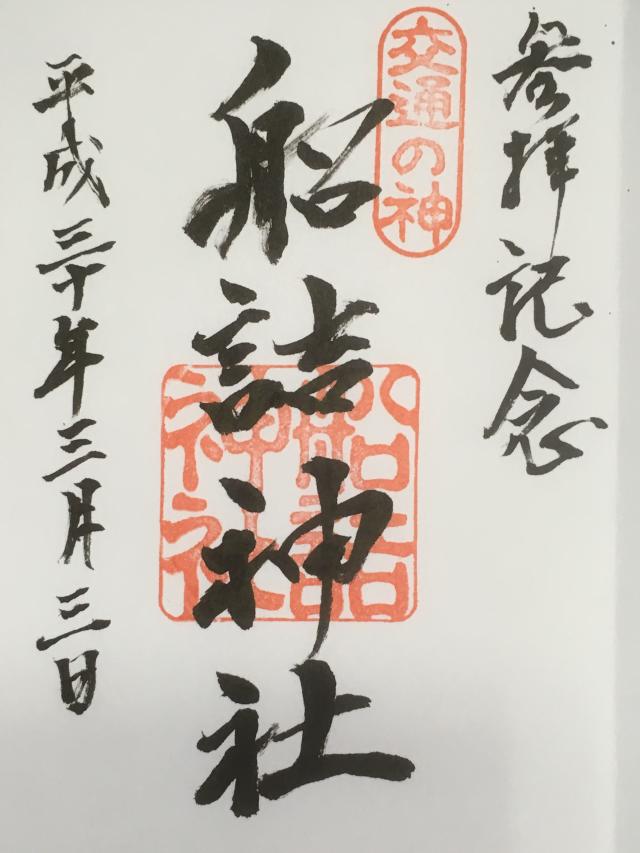 参拝記念
交通の神
船詰神社
船詰神社
平成三十年三月三日